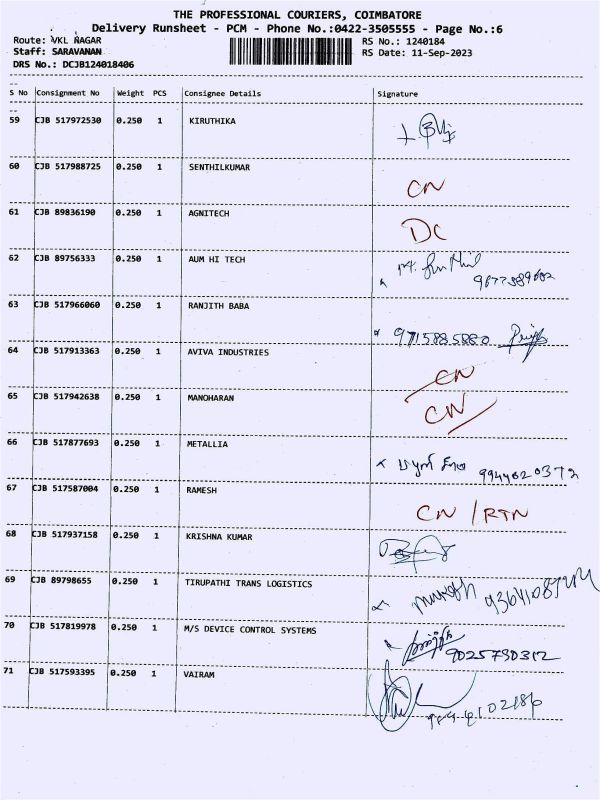 THE PROFESSIONAL COURIERS, COIMBATORE
Delivery Runsheet - PCM - Phone No.:0422-3505555 - Page No.:6
Route: VKL NAGAR RS No.: 1240184
Staff: SARAVANAN RS Date: 11-Sep-2023
DRS No.: DCJB124018406
S No Consignment No Weight PCS Consignee Details Signature
59 CJB 517972530 0.250 1 KIRUTHIKA
60 CJB 517988725 0.250 1 SENTHILKUMAR CN
61 CJB 89836190 0.250 1 AGNITECH DC
62 CJB 89756333 0.250 1 AUM HI TECH
63 CJB 517966060 0.250 1 RANJITH BABA
64 CJB 517913363 0.250 1 AVIVA INDUSTRIES CN
65 CJB 517942638 0.250 1 MANOHARAN CN
66 CJB 517877693 0.250 1 METALLIA 9944620372
67 CJB 517587004 0.250 1 RAMESH CN / RTN
68 CJB 517937158 0.250 1 KRISHNA KUMAR
69 CJB 89798655 0.250 1 TIRUPATHI TRANS LOGISTICS
70 CJB 517819978 0.250 1 M/S DEVICE CONTROL SYSTEMS 9025730312
71 CJB 517593395 0.250 1 VAIRAM